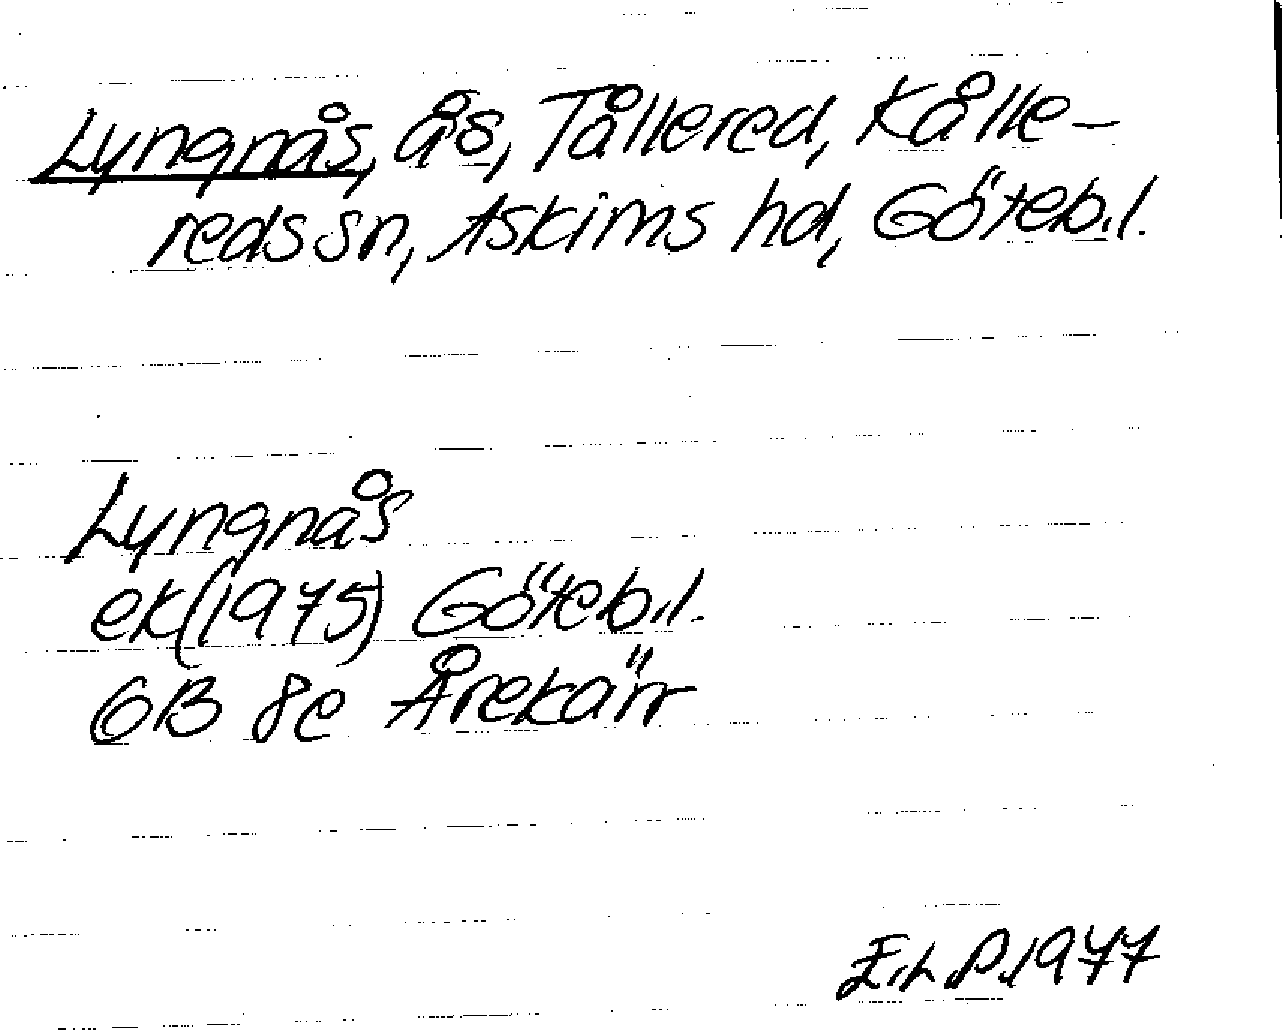 Lyngnås, ås, Tållered, Kålle-
reds sn, Askims hd, Göteb.l.
Lyngnås
ek(1975) Göteb.l.
6B 8c Årekärr
E.L.P.1977